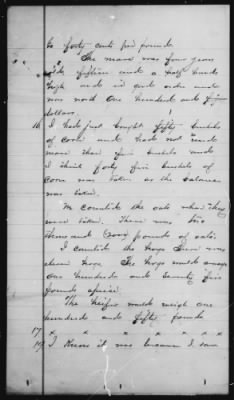 to forty cents per pound.
The mare was four years
old, fifteen and a half hands
high and in good order and
was worth one hundred and fifty
dollars.
16 I had just bought fifty bushels
of corn and had not used
more than five bushels and
I think forty five bushels of
corn was taken as the balance
was taken.
We counted the oats when they
were taken. There was two
thousand (2000) pounds of oats.
I counted the hogs there was
eleven hogs. The hogs would average
one hundred and seventy five
pounds apiece.
The heifer would weigh one
hundred and fifty pounds
17 x x x x x x x
19 I know it was because I saw